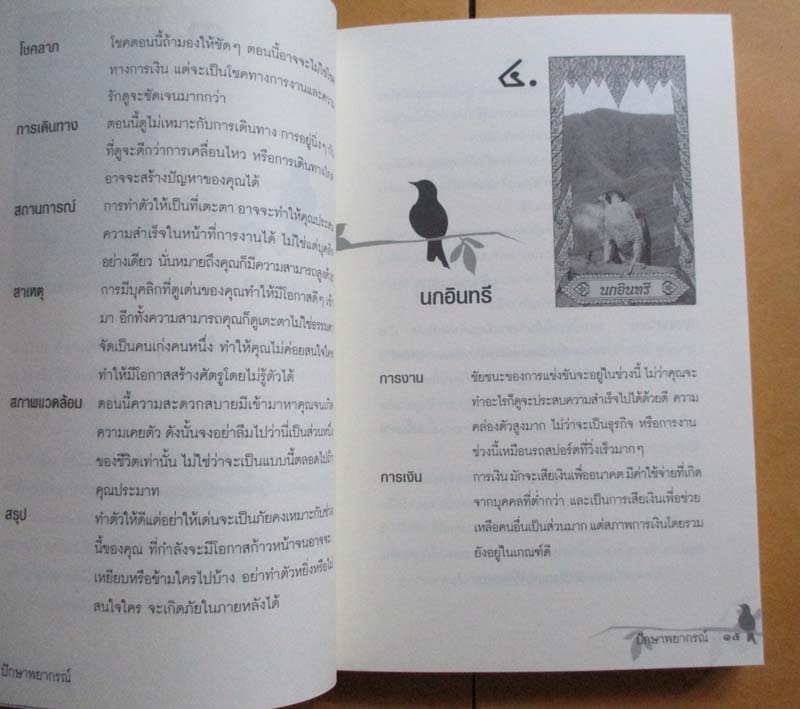 โชคลาภ
โชคตอนนี้ถ้ามองให้ชัดๆ ตอนนี้อาจจะไม่ใช่โชค
ทางการเงิน แต่จะเป็นโชคทางการงานและความ
รักดูจะชัดเจนมากกว่า
การเดินทาง
ตอนนี้ดูไม่เหมาะกับการเดินทาง การอยู่นิ่งๆ
ที่ดูจะดีกว่าการเคลื่อนไหว หรือการเดินทาง
อาจจะสร้างปัญหาของคุณได้
สถานการณ์
การทำตัวให้เป็นที่เตะตา อาจจะทำให้คุณประสบ
ความสำเร็จในหน้าที่การงานได้ ไม่ใช่แต่บุคลิก
อย่างเดียว นั่นหมายถึงคุณก็มีความสามารถสูงด้วย
สาเหตุ
การมีบุคลิกที่ดูเด่นของคุณทำให้มีโอกาสดีๆ เข้า
มา อีกทั้งความสามารถคุณก็ดูเตะตาไม่ใช่ธรรมดา
จัดเป็นคนเก่งคนหนึ่ง ทำให้คุณไม่ค่อยสนใจใคร
ทำให้มีโอกาสสร้างศัตรูโดยไม่รู้ตัวได้
สภาพแวดล้อม
ตอนนี้ความสะดวกสบายมีเข้ามาหาคุณจนเกิด
ความเคยตัว ดังนั้นจงอย่าลืมไปว่านี่เป็นส่วนหนึ่ง
ของชีวิตเท่านั้น ไม่ใช่ว่าจะเป็นแบบนี้ตลอดไปถ้า
คุณประมาท
สรุป
ทำตัวให้ดีแต่อย่าให้เด่นจะเป็นภัยคงเหมาะกับช่วง
นี้ของคุณ ที่กำลังจะมีโอกาสก้าวหน้าจนอาจจะ
เหยียบหรือข้ามใครไปบ้าง อย่าทำตัวหยิ่งหรือไม่
สนใจใคร จะเกิดภัยในภายหลังได้
ปักษาพยากรณ์
๔.
นกอินทรี
นกอินทรี
การงาน
ชัยชนะของการแข่งขันจะอยู่ในช่วงนี้ ไม่ว่าคุณจะ
ทำอะไรก็ดูจะประสบความสำเร็จไปได้ด้วยดี ความ
คล่องตัวสูงมาก ไม่ว่าจะเป็นธุรกิจ หรือการงาน
ช่วงนี้เหมือนรถสปอร์ตที่วิ่งเร็วมากๆ
การเงิน
การเงิน มักจะเสียเงินเพื่ออนาคต มีค่าใช้จ่ายที่เกิด
จากบุคคลที่ต่ำกว่า และเป็นการเสียเงินเพื่อช่วย
เหลือคนอื่นเป็นส่วนมาก แต่สภาพการเงินโดยรวม
ยังอยู่ในเกณฑ์ดี
ปักษาพยากรณ์ ๑๕